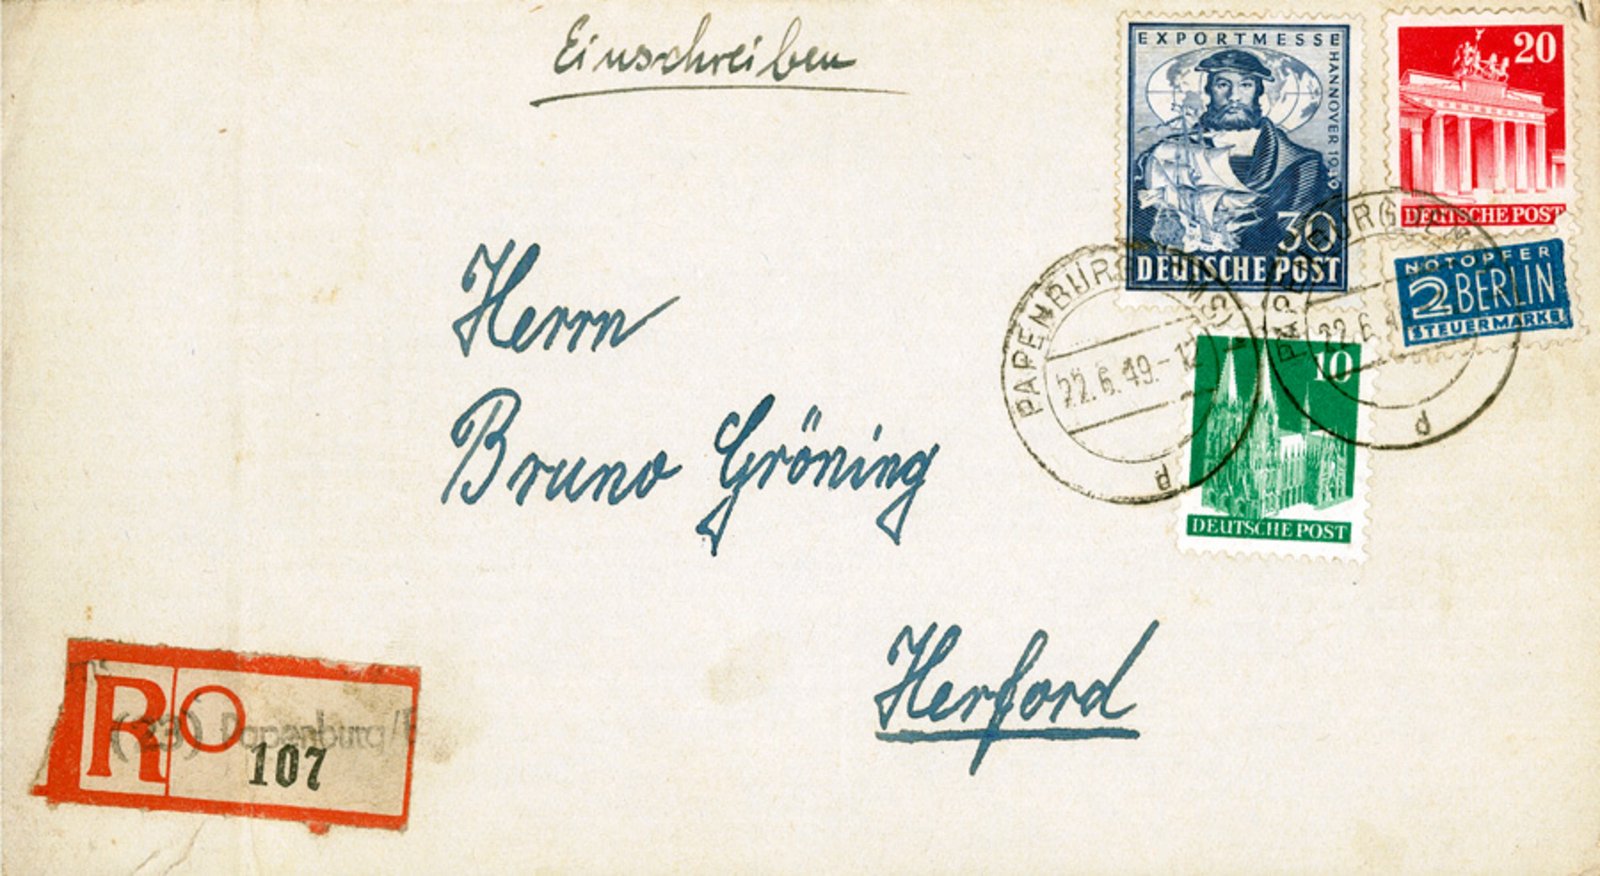 Einschreiben
EXPORTMESSE HANNOVER 1949
30
DEUTSCHE POST
20
DEUTSCHE POST
NOTOPFER
2 BERLIN
STEUERMARKE
PAPENBURG (EMS)
22.6.49.-12
d
PAPENBURG (EMS)
22.6.
d
10
DEUTSCHE POST
Herrn
Bruno Gröning
Herford
R
(23) Papenburg/
107